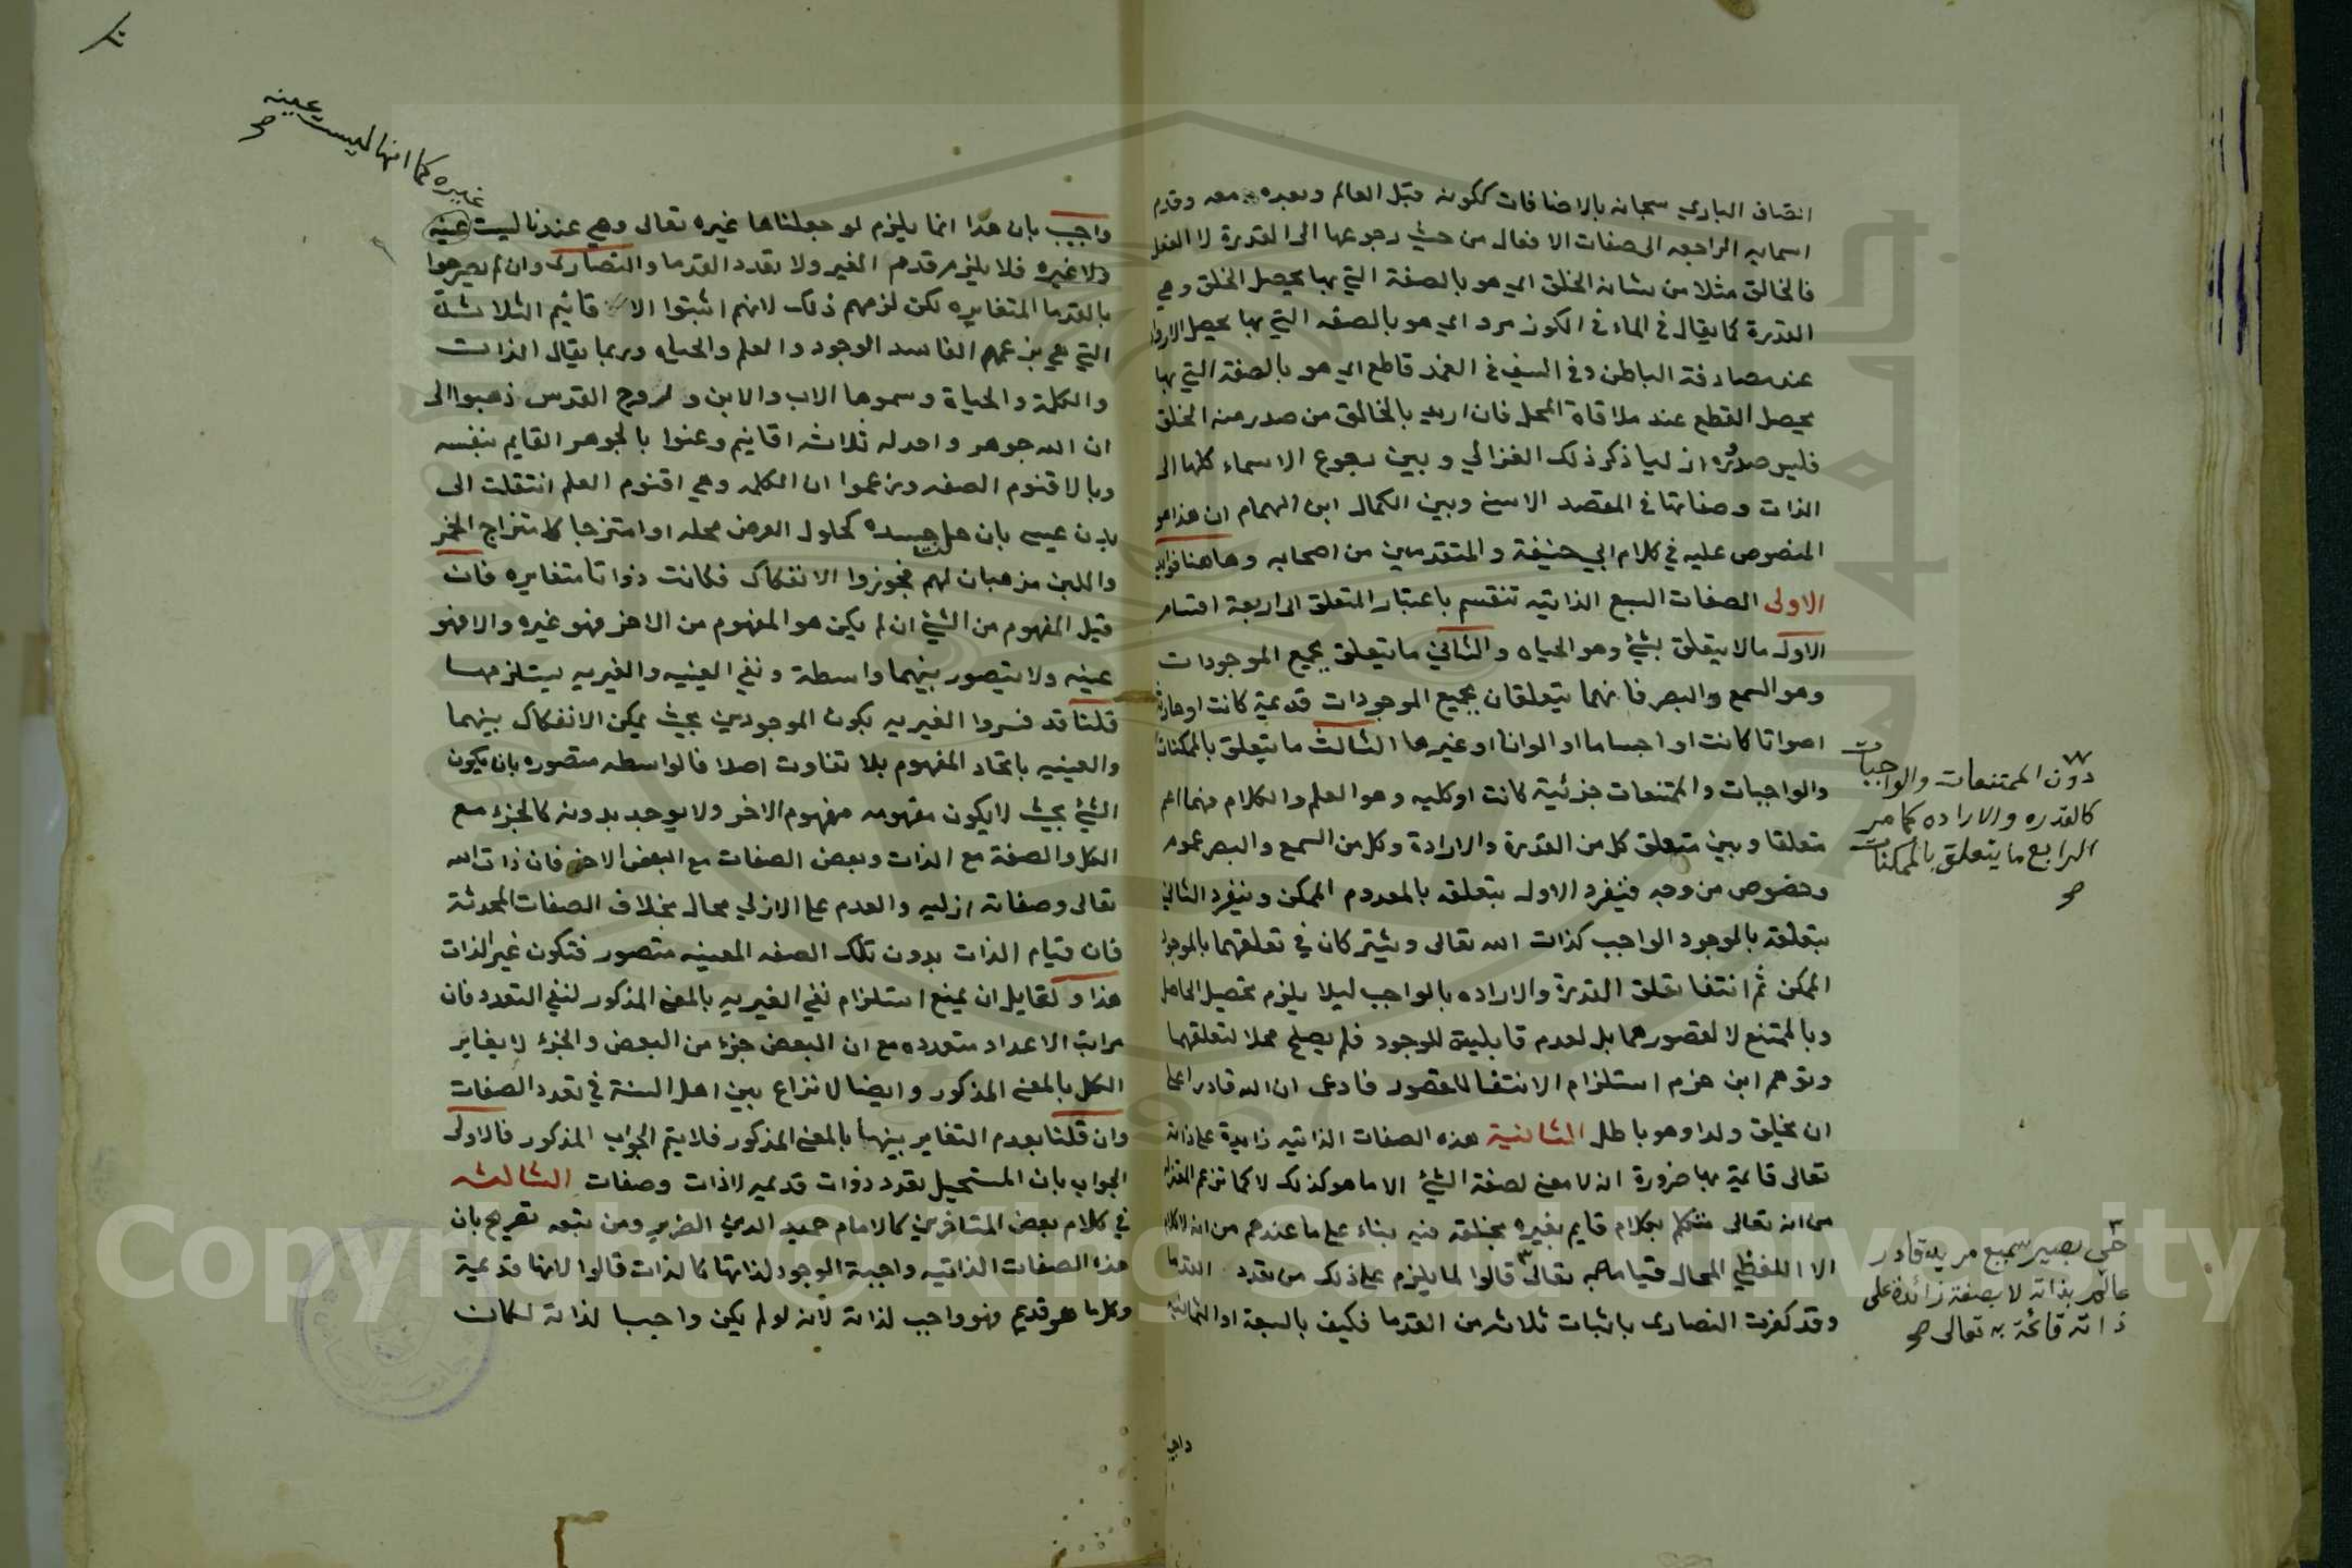 اتصاف الباري سبحانه بالاضافات ككونه قبل العالم وبعده ومعه وقدم
اسمايه الراجعه الى صفات الافعال من حيث رجوعها الى القدرة لا الفعل
فالخالق مثلا من شانه الخلق اي هو بالصفة التي بها يحصل الخلق وهي
القدرة كما يقال في الماء في الكوز مرو اي هو بالصفه التي بها يحصل الاروا
عند مصادفة الباطن وفي السيف في الغمد قاطع اي هو بالصفة التي بها
يحصل القطع عند ملاقاة المحل فان اريد بالخالق من صدر منه الخلق
فليس صدوره ازليا ذكر ذلك الغزالي وبين رجوع الاسماء كلها الى
الذات وصفاتها في المقصد الاسنى وبين الكمال ابن الهمام ان هذا هو
المنصوص عليه في كلام ابي حنيفة والمتقدمين من اصحابه وهاهنا فوايد
الاولى الصفات السبع الذاتيه تنقسم باعتبار المتعلق الى اربعة اقسام
الاول ما لا يتعلق بشئ وهو الحياه والثاني ما يتعلق بجميع الموجودات
وهو السمع والبصر فانهما يتعلقان بجميع الموجودات قديمة كانت او حادثة
اصواتا كانت او اجساما او الوانا او غيرها الثالث ما يتعلق بالممكنات
والواجبات والممتنعات جزئية كانت او كليه وهو العلم والكلام فهما اعم
متعلقا وبين متعلق كل من القدرة والارادة وكل من السمع والبصر عموم
وخصوص من وجه فينفرد الاول بتعلقه بالمعدوم الممكن وينفرد الثاني
بتعلقه بالموجود الواجب كذات الله تعالى ويشتركان في تعلقهما بالموجود
الممكن ثم انتفا تعلق القدرة والاراده بالواجب ليلا يلزم تحصيل الحاصل
وبالممتنع لا لقصورهما بل لعدم قابليته للوجود فلم يصلح محلا لتعلقهما
وتوهم ابن حزم استلزام الانتفا للقصور فادعى ان الله قادر على
ان يخلق ولدا وهو باطل الثانية هذه الصفات الذاتيه زايدة على ذاته
تعالى قايمة بها ضرورة انه لا معنى لصفة الشئ الا ما هو كذلك لا كما تزعم المعتزله
من انه تعالى متكلم بكلام قايم بغيره يخلقه فيه بناء على ما عندهم من انه لا كلام
الا اللفظي المحال قيامه به تعالى قالوا لما يلزم على ذلك من تعدد القدما
وقد كفرت النصارى باثبات ثلاثه من القدما فكيف بالسبعة او الثمانيه
دون الممتنعات والواجبات
كالقدره والاراده كما مر
الرابع ما يتعلق بالممكنات
صح
حي بصير سميع مريد قادر
عالم بذاته لا بصفة زائدة على
ذاته قائمة به تعالى صح
واجيب
غيره كما انها ليست عينه
صح
واجيب بان هذا انما يلزم لو جعلناها غيره تعالى وهي عندنا ليست عينه
ولا غيره فلا يلزم قدم الغير ولا تعدد القدما والنصارى وان لم يصرحوا
بالقدما المتغايره لكن لزمهم ذلك لانهم اثبتوا الاقانيم الثلاثة
التي هي بزعمهم الفاسد الوجود والعلم والحياه وربما يقال الذات
والكلمة والحياة وسموها الاب والابن وروح القدس ذهبوا الى
ان الله جوهر واحد له ثلاثه اقانيم وعنوا بالجوهر القايم بنفسه
وبالاقنوم الصفه وزعموا ان الكلمه وهي اقنوم العلم انتقلت الى
بدن عيسى بان حل جسده كحلول العرض محله او امتزجا كامتزاج الخمر
واللبن مذهبان لهم فجوزوا الانفكاك فكانت ذواتا متغايره فان
قيل المفهوم من الشئ ان لم يكن هو المفهوم من الاخر فهو غيره والا فهو
عينه ولا يتصور بينهما واسطة ونفي العينيه والغيريه يستلزمها
قلنا قد فسروا الغيريه بكون الموجودين بحيث يمكن الانفكاك بينهما
والعينيه باتحاد المفهوم بلا تفاوت اصلا فالواسطه متصوره بان يكون
الشئ بحيث لا يكون مفهومه مفهوم الاخر ولا يوجد بدونه كالجزء مع
الكل والصفة مع الذات وبعض الصفات مع البعض الاخر فان ذات الله
تعالى وصفاته ازليه والعدم على الازلي محال بخلاف الصفات المحدثة
فان قيام الذات بدون تلك الصفه المعينه متصور فتكون غير الذات
هذا ولقايل ان يمنع استلزام نفي الغيريه بالمعنى المذكور لنفي التعدد فان
مراتب الاعداد متعدده مع ان البعض جزء من البعض والجزء لا يغاير
الكل بالمعنى المذكور وايضا لا نزاع بين اهل السنة في تعدد الصفات
وان قلنا بعدم التغاير بينها بالمعنى المذكور فلا يتم الجواب المذكور فالاولى
الجواب بان المستحيل تعدد ذوات قديمه لا ذات وصفات الثالثه
في كلام بعض المتاخرين كالامام حميد الدين الضرير ومن تبعه تصريح بان
هذه الصفات الذاتيه واجبة الوجود لذاتها كالذات قالوا لانها قديمة
وكل ما هو قديم فهو واجب لذاته لانه لو لم يكن واجبا لذاته لكان
Copyright © King Saud University